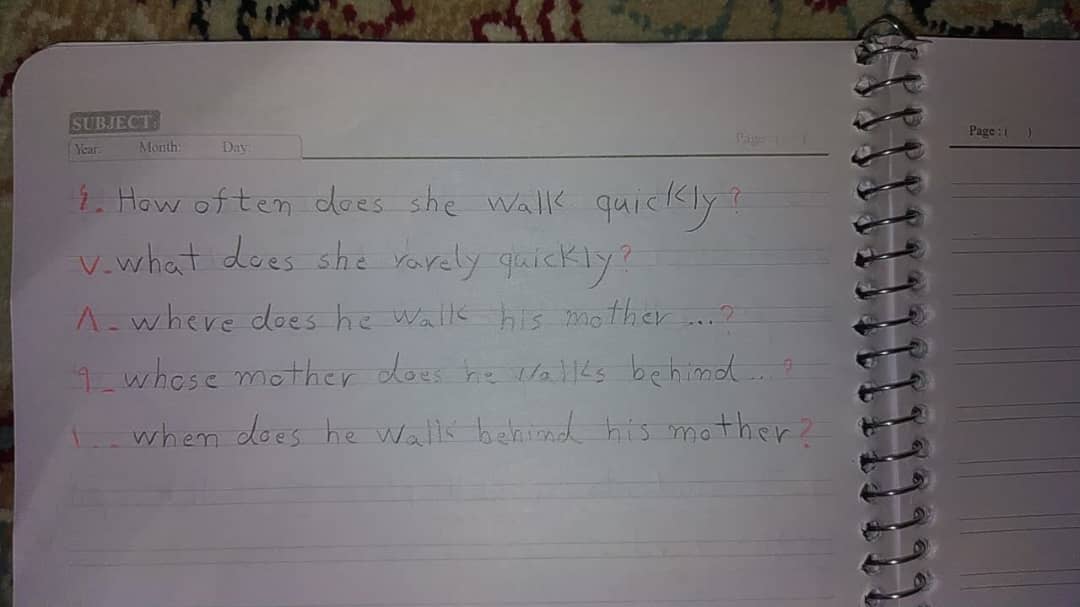 SUBJECT:
Year: Month: Day: Page: ( )
۶. How often does she walk quickly?
۷-what does she rarely quickly?
۸- where does he walk his mother ...?
۹- whose mother does he walks behind...?
۱۰- when does he walk behind his mother?
Page : ( )